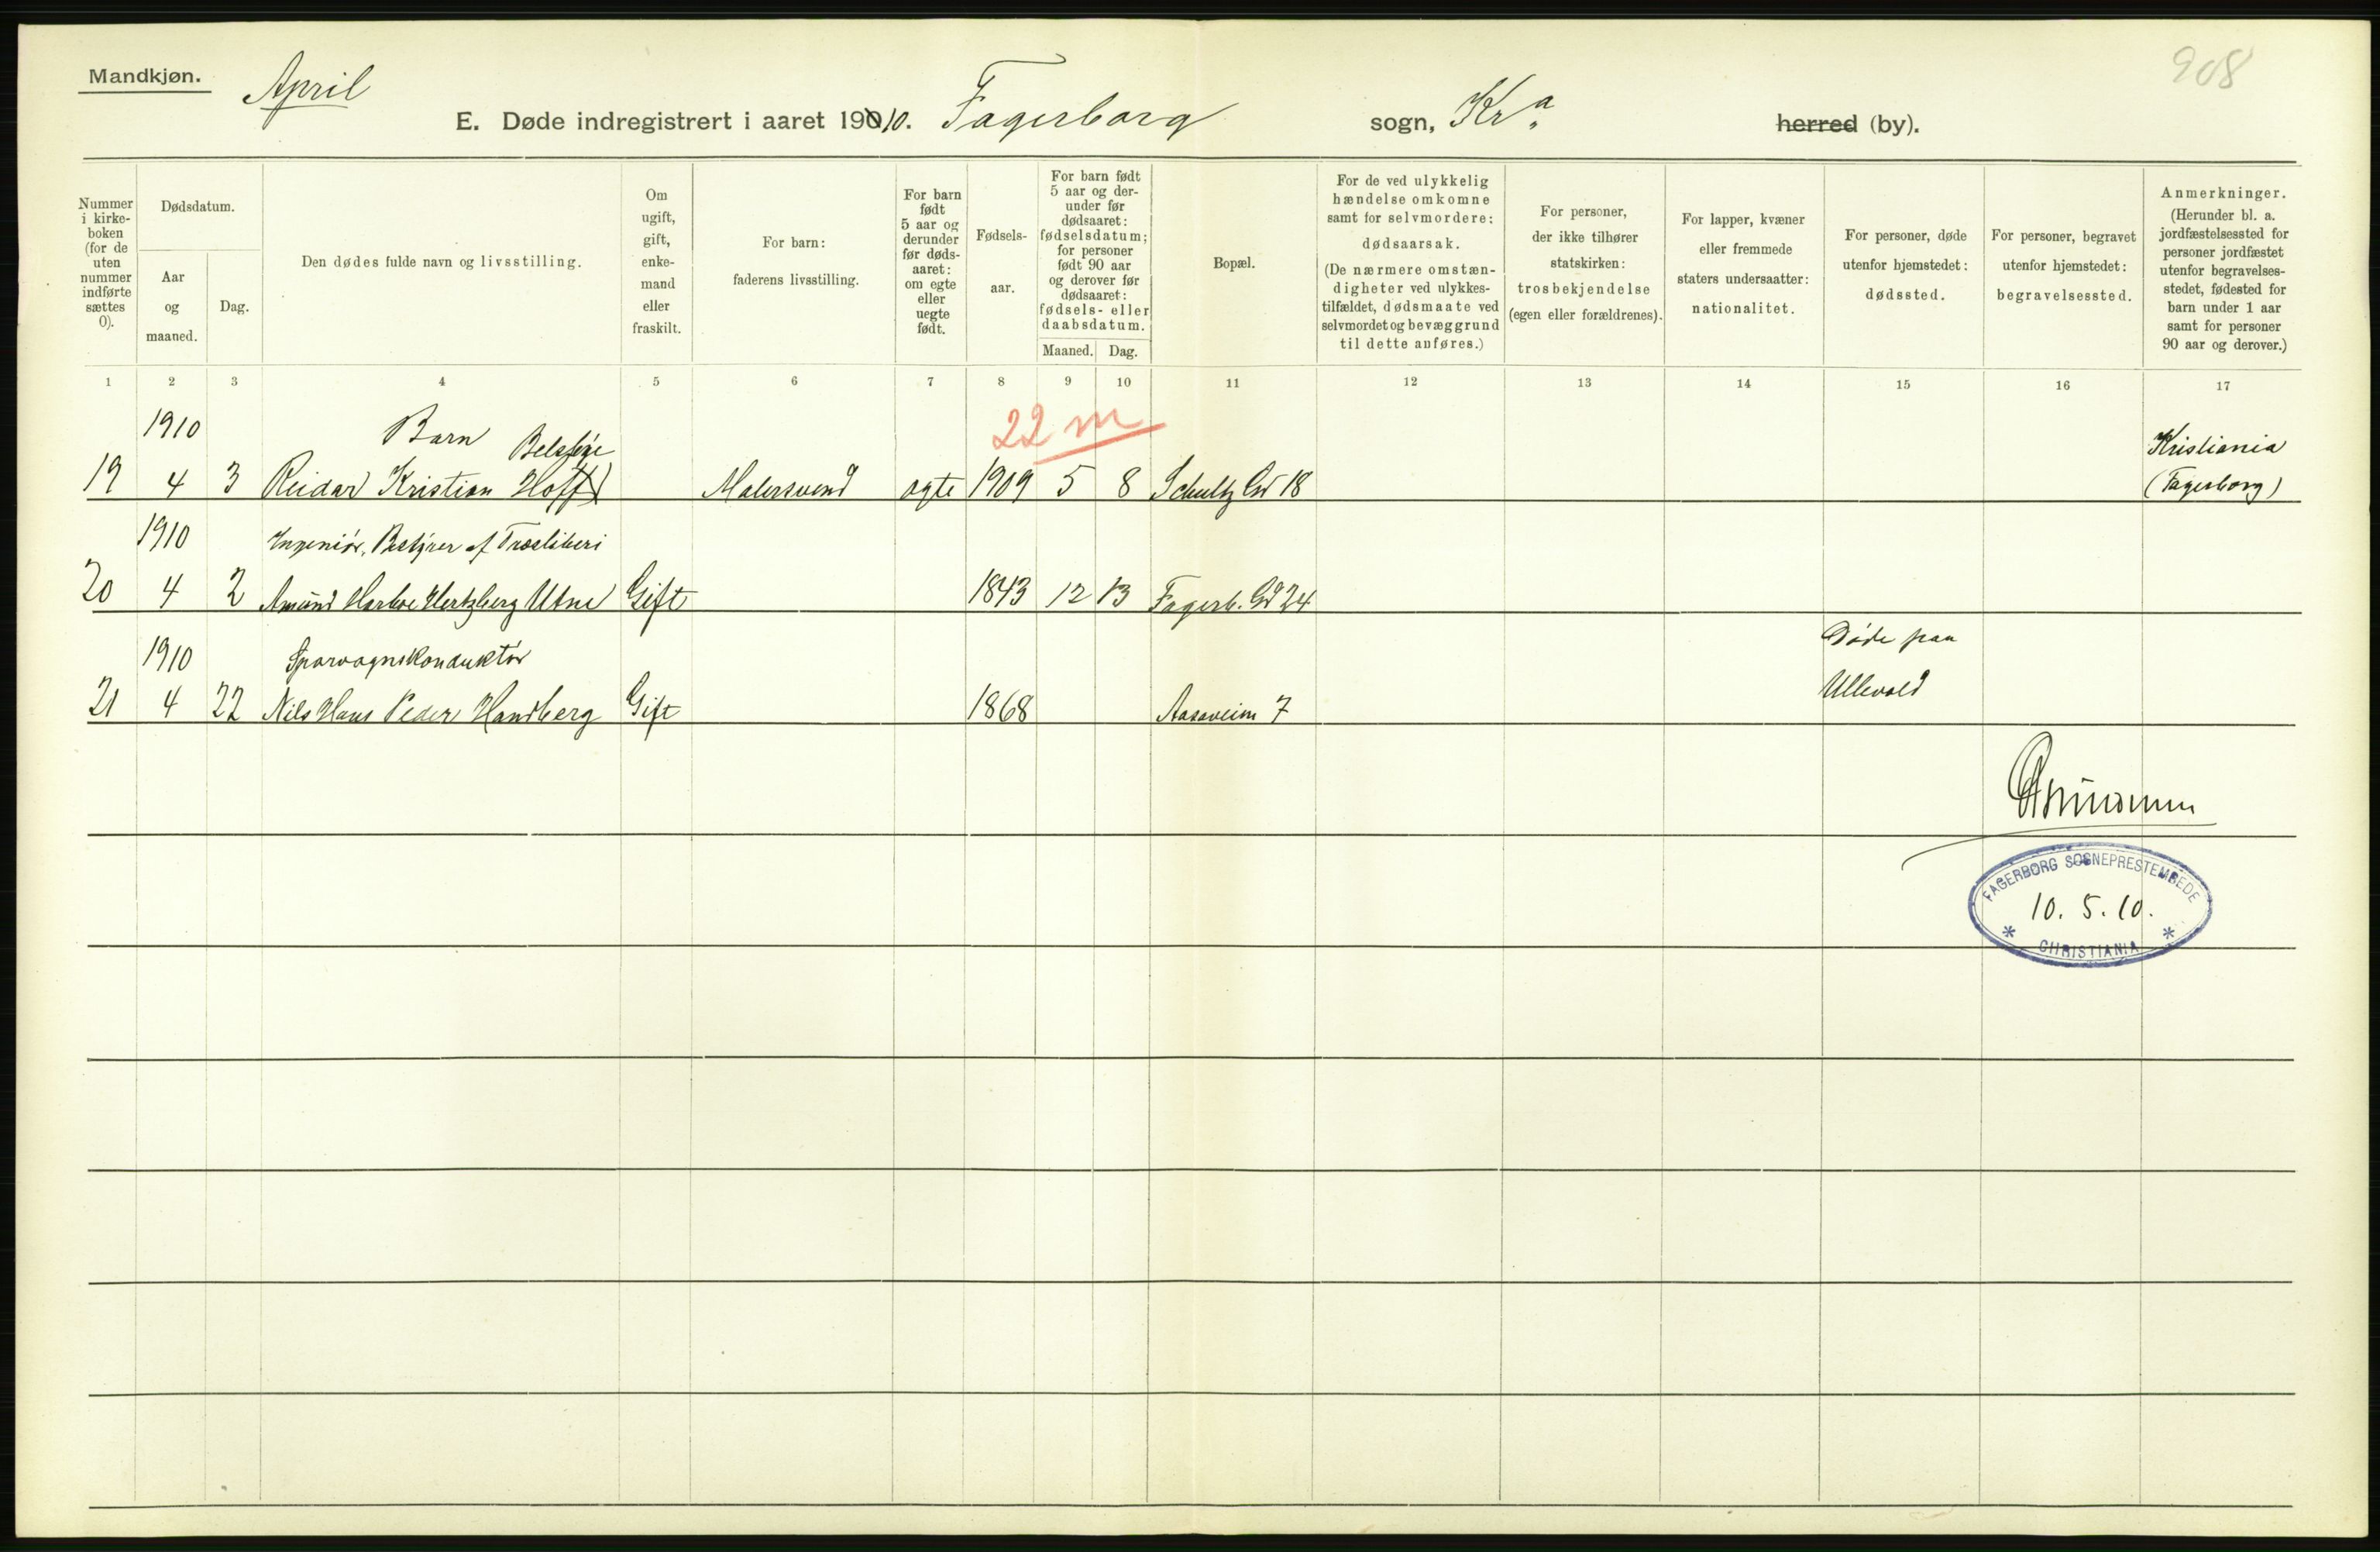 Mandkjøn.
April
908
E. Døde indregistrert i aaret 1910. Fagerborg sogn, Kra herred (by).
Nummer i kirke-boken (for de uten nummer indførte sættes 0).
Dødsdatum.
Aar og maaned.
Dag.
Den dødes fulde navn og livsstilling.
Om ugift, gift, enke-mand eller fraskilt.
For barn: faderens livsstilling.
For barn født 5 aar og derunder før døds-aaret: om egte eller uegte født.
Fødsels-aar.
For barn født 5 aar og der-under før dødsaaret: fødselsdatum; for personer født 90 aar og derover før dødsaaret: fødsels- eller daabsdatum.
Maaned. Dag.
Bopæl.
For de ved ulykkelig hændelse omkomne samt for selvmordere: dødsaarsak. (De nærmere omstæn-digheter ved ulykkes-tilfældet, dødsmaate ved selvmordet og bevæggrund til dette anføres.)
For personer, der ikke tilhører statskirken: trosbekjendelse (egen eller forældrenes).
For lapper, kvæner eller fremmede staters undersaatter: nationalitet.
For personer, døde utenfor hjemstedet: dødssted.
For personer, begravet utenfor hjemstedet: begravelsessted.
Anmerkninger. (Herunder bl. a. jordfæstelsessted for personer jordfæstet utenfor begravelses-stedet, fødested for barn under 1 aar samt for personer 90 aar og derover.)
1 2 3 4 5 6 7 8 9 10 11 12 13 14 15 16 17
22 m
1910 Barn Kristiania
19 4 3 Reidar Kristian Hoff Malersvend ægte 1909 5 8 Schultz Gd 18 (Fagerborg)
1910 Ingeniør, Bestyrer af Træsliberi
20 4 2 Amund Harboe Hertzberg Utne Gift 1843 12 13 Fagerb. Gd 24
1910 Sporvognskonduktør Døde paa
21 4 22 Nils Hans Peder Handberg Gift 1868 Aasaveien 7 Ullevold
FAGERBORG SOGNEPRESTEMBEDE
10. 5. 10.
* CHRISTIANIA *